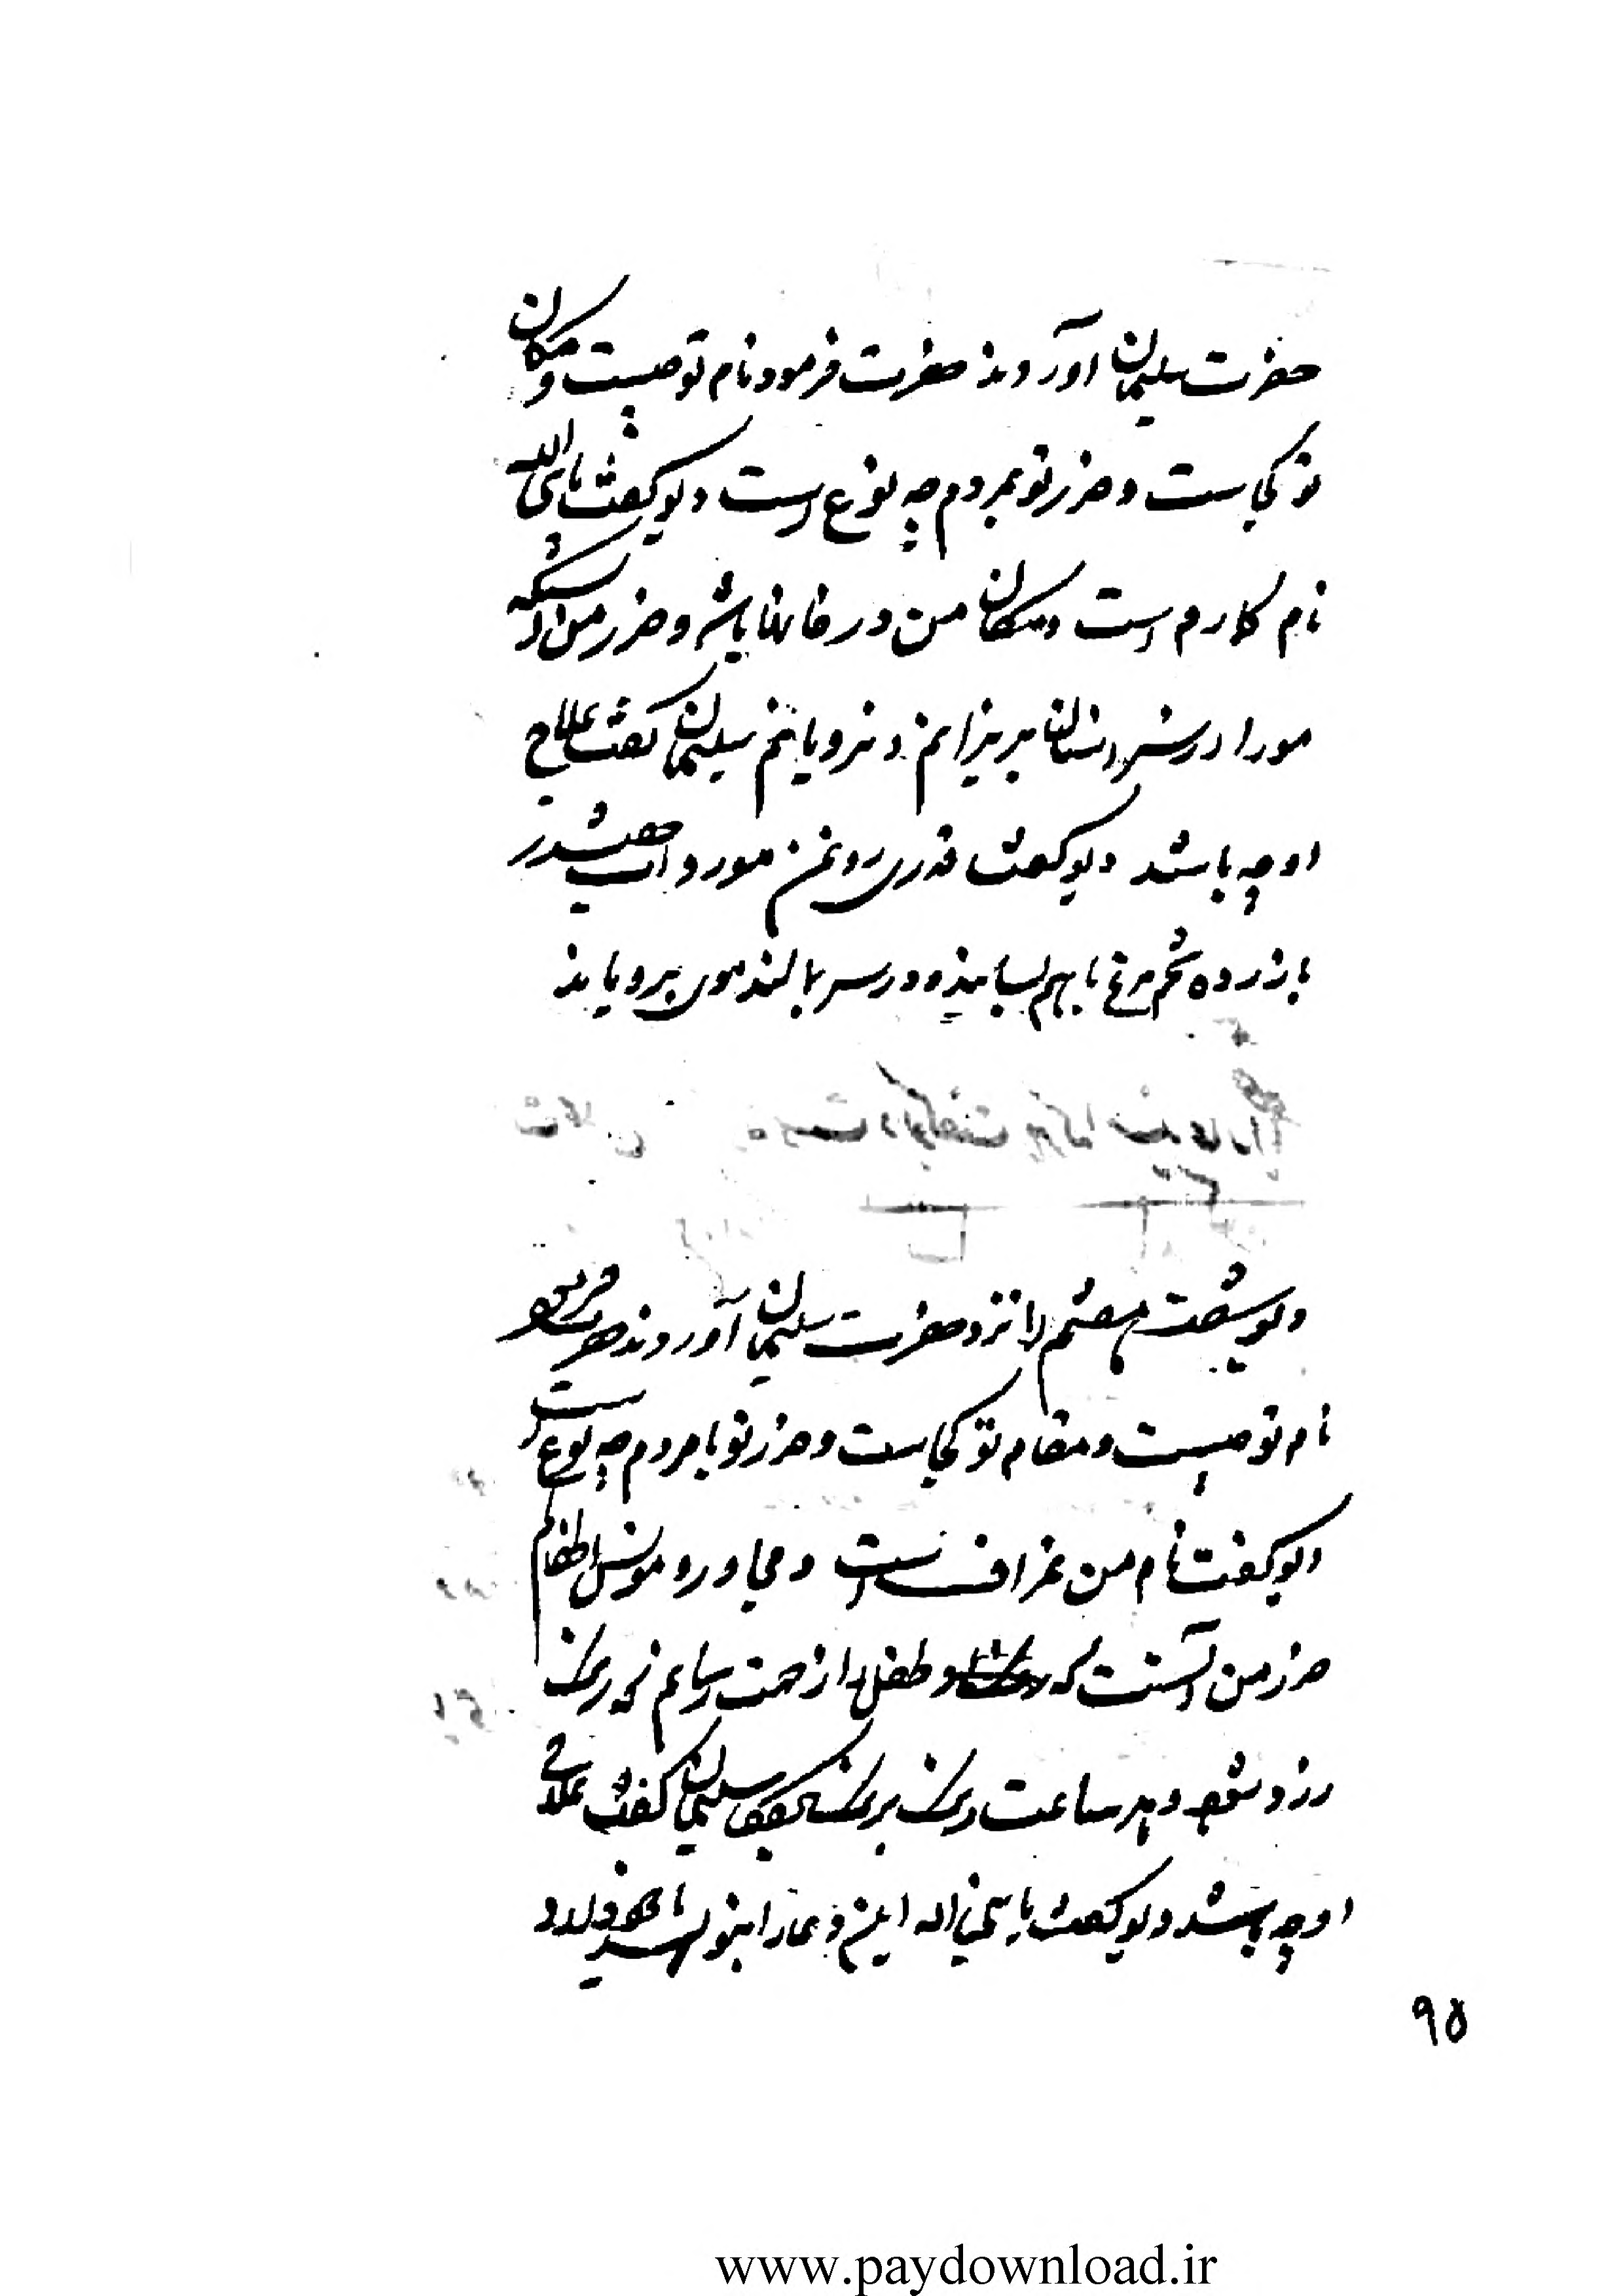 حضرت سلیمان آوردند حضرت فرمود نام تو چیست و مکان
تو کجاست و ضرر تو بمردم چه نوع است دیو گفت یا نبی الله
نام کارم است و مکان من در خانها باشد و ضرر من آنستکه
مو را در سر انسان بریزانم و نرویانم سلیمان گفت علاج
او چه باشد دیو گفت قدری روغن مورد و آب
با زرده تخم مرغ با هم بسایند و در سر بمالند موی برویاند
دیو شصت هفتم را نزد حضرت سلیمان آوردند حضرت فرمود
نام تو چیست و مقام تو کجاست و ضرر تو با مردم چه نوع است
دیو گفت نام من عراف است و مجاور و مونس اطفالم
ضرر من آنست که طفل را زحمت رسانم که رنگ
زرد شود و هر ساعت رنگ برنگ سلیمان گفت علاج
او چه باشد دیو گفت یا نبی اله این دعا را بنویسند با خود دارد
۹۵
www.paydownload.ir